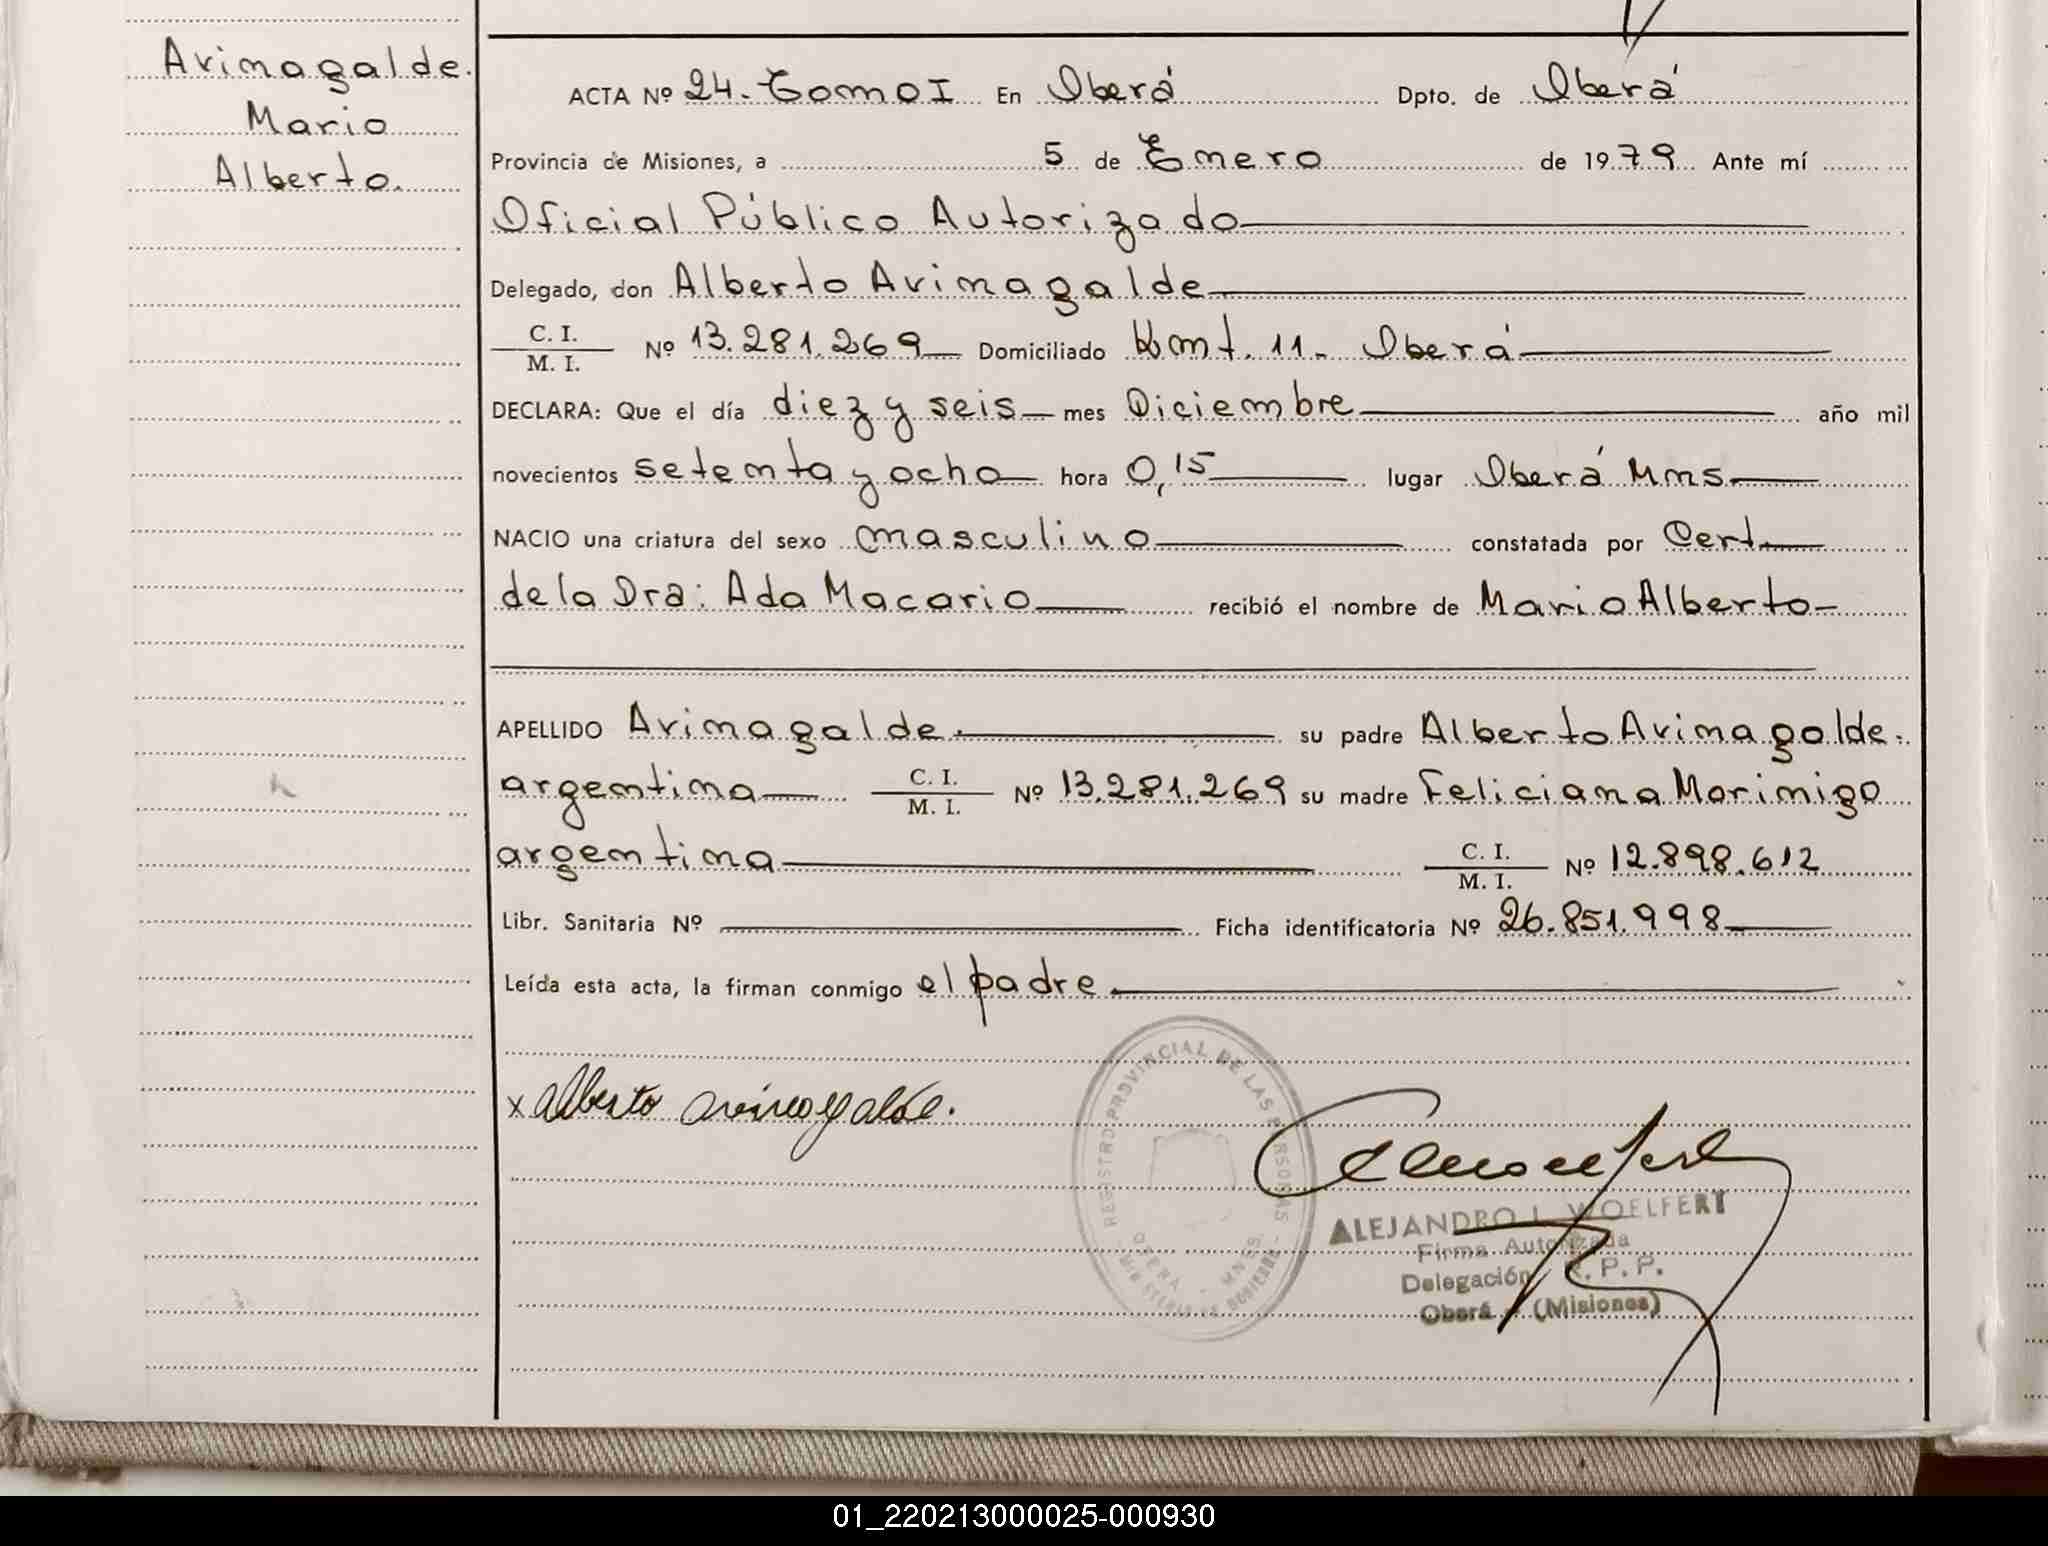 Avinagalde.
Mario
Alberto.
ACTA Nº 24. Tomo I En Oberá Dpto. de Oberá
Provincia de Misiones, a 5 de Enero de 1979 Ante mí
Oficial Público Autorizado
Delegado, don Alberto Avinagalde
C. I.
M. I. Nº 13.281.269 Domiciliado Kmt. 11. Oberá
DECLARA: Que el día diez y seis mes Diciembre año mil
novecientos setenta y ocho hora 0,15 lugar Oberá Mns
NACIO una criatura del sexo masculino constatada por Cert
de la Dra: Ada Macario recibió el nombre de Mario Alberto
APELLIDO Avinagalde. su padre Alberto Avinagalde.
argentina C. I.
M. I. Nº 13.281.269 su madre Feliciana Morinigo
argentina C. I.
M. I. Nº 12.898.612
Libr. Sanitaria Nº Ficha identificatoria Nº 26.851.998
Leída esta acta, la firman conmigo el padre
x Alberto Avinagalde.
REGISTRO PROVINCIAL DE LAS PERSONAS
OBERÁ - MNES.
MINISTERIO DE GOBIERNO
ALEJANDRO L. WOELFERT
Firma Autorizada
Delegación R. P. P.
Oberá - (Misiones)
01_220213000025-000930